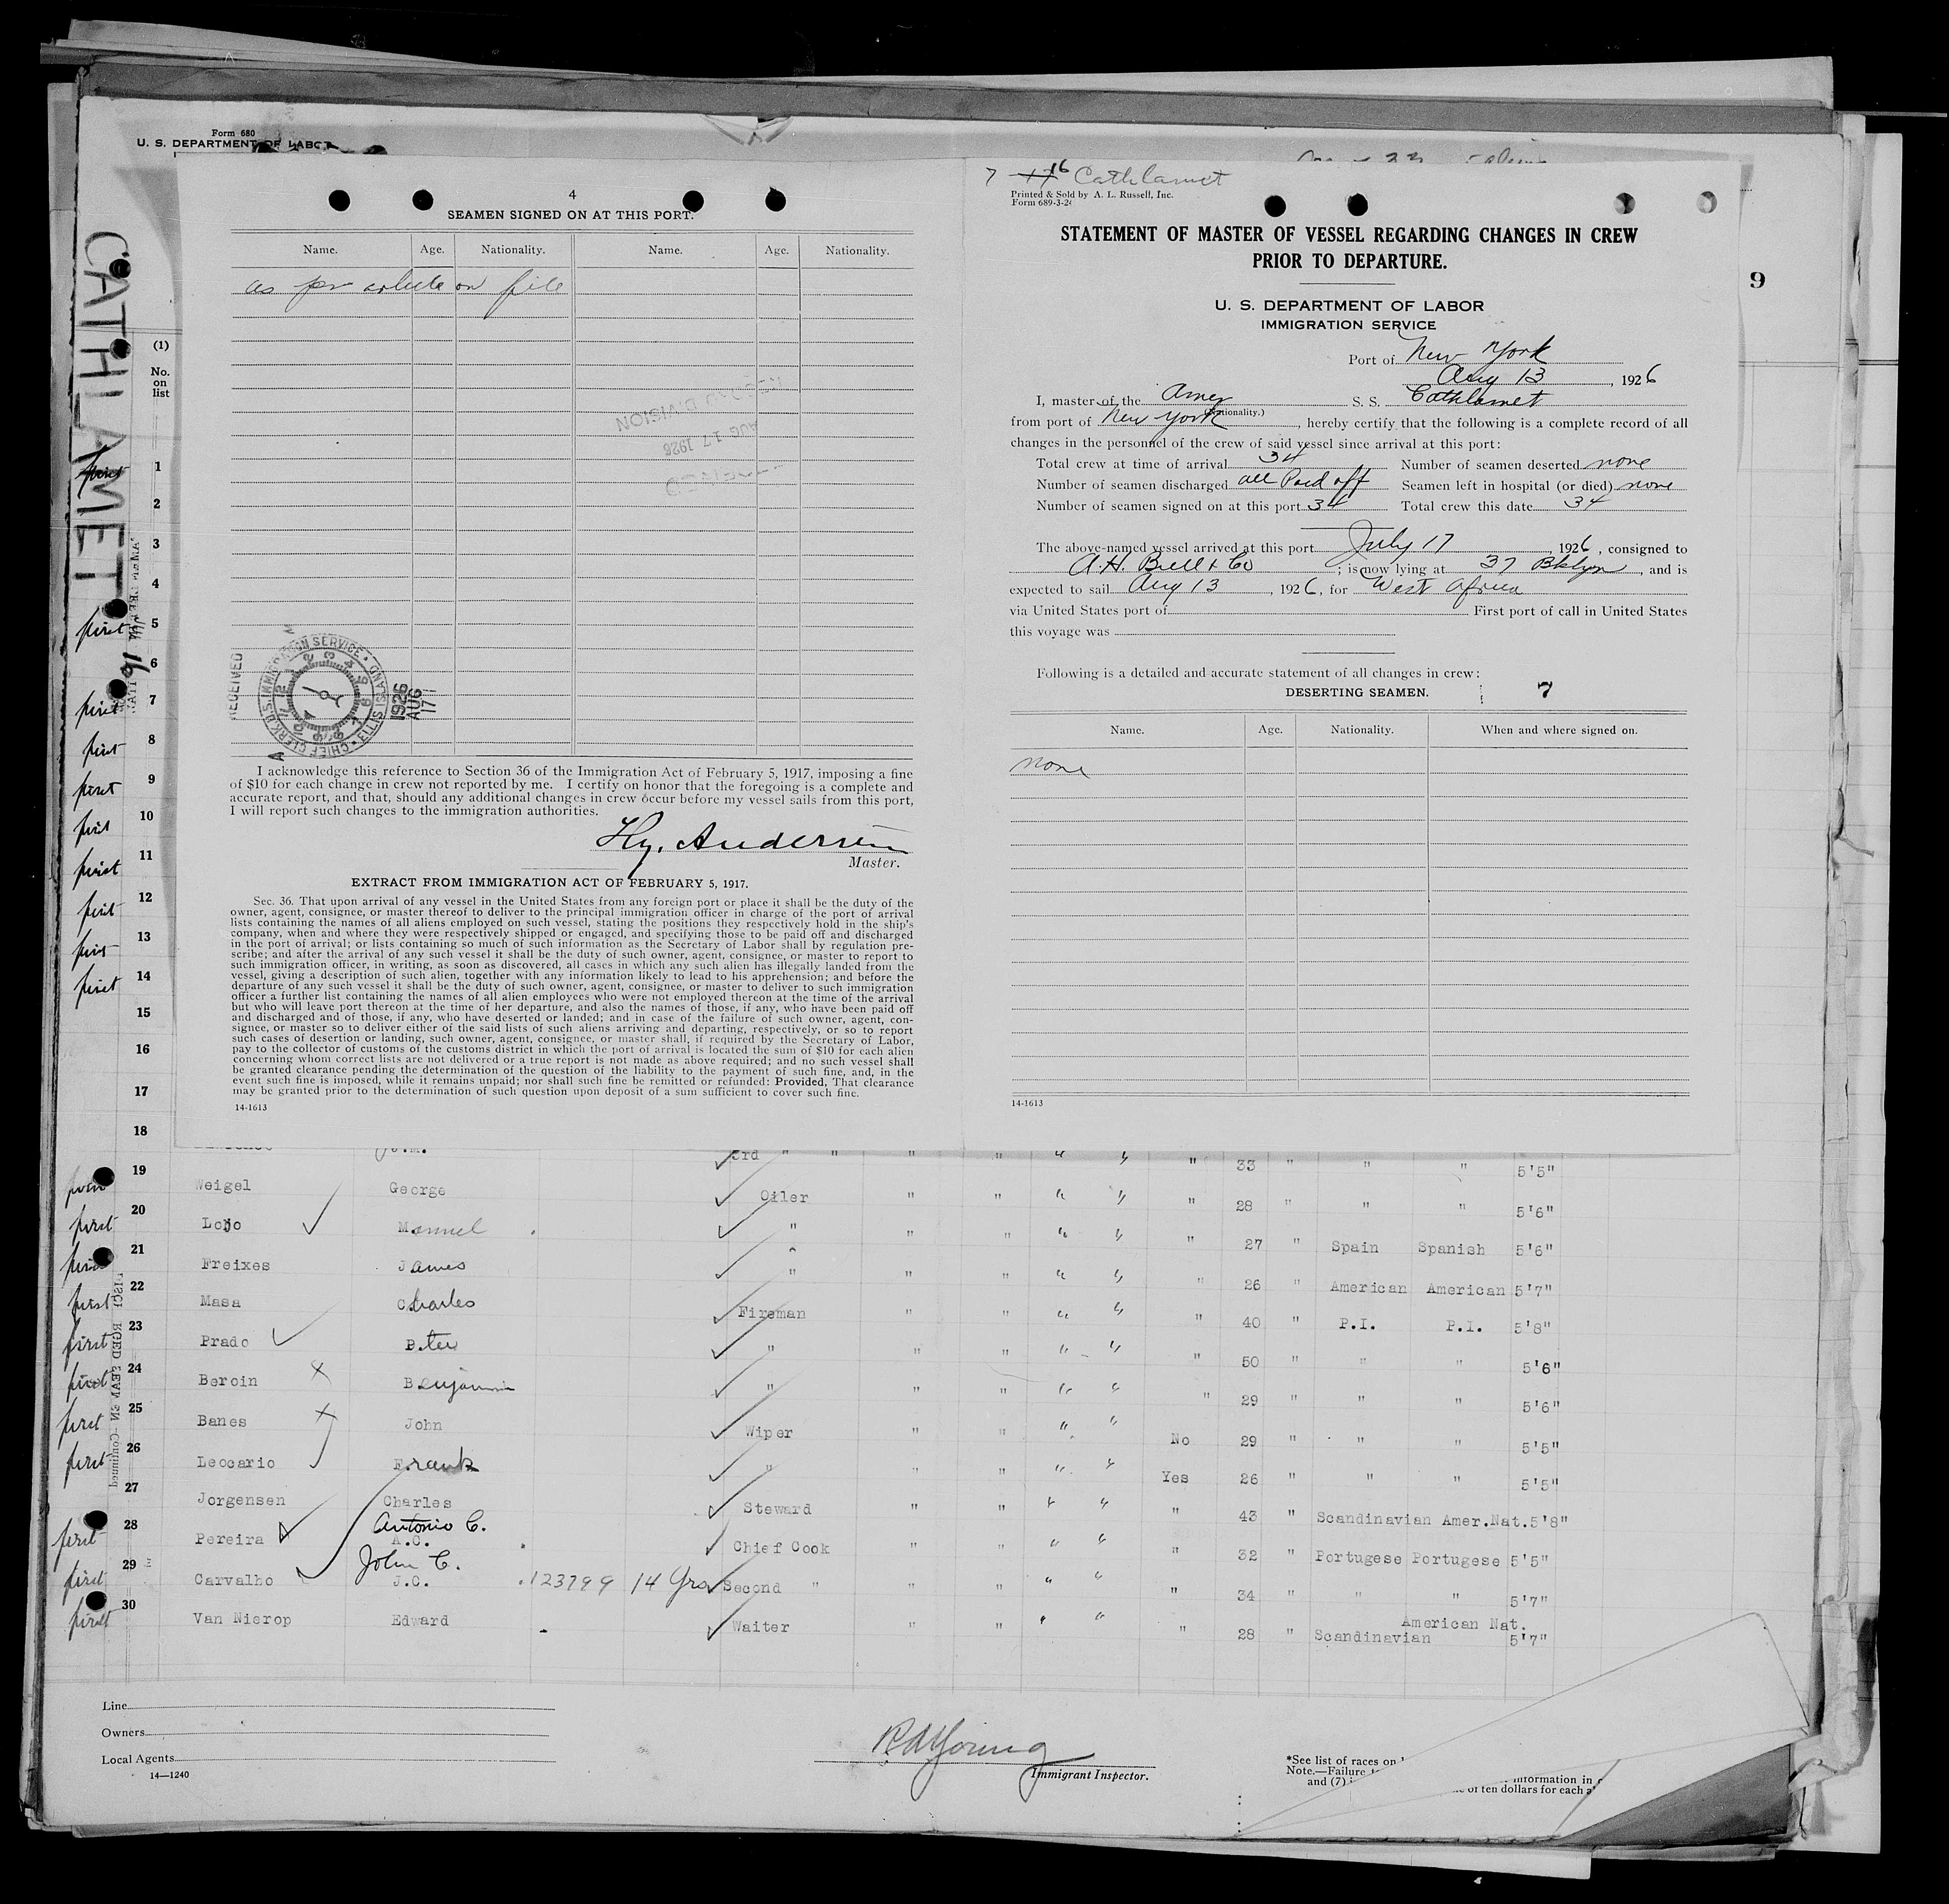 Form 680
U. S. DEPARTMENT OF LABOR
CATHLAMET
9
(1)
No. on list
4
SEAMEN SIGNED ON AT THIS PORT.
Name. Age. Nationality. Name. Age. Nationality.
as per on file
AUG 17 1926
RECEIVED
U.S. IMMIGRATION SERVICE
ELLIS ISLAND
CHIEF CLERK
1926 AUG 17
I acknowledge this reference to Section 36 of the Immigration Act of February 5, 1917, imposing a fine
of $10 for each change in crew not reported by me. I certify on honor that the foregoing is a complete and
accurate report, and that, should any additional changes in crew occur before my vessel sails from this port,
I will report such changes to the immigration authorities.
Hy. Andersen
Master.
EXTRACT FROM IMMIGRATION ACT OF FEBRUARY 5, 1917.
Sec. 36. That upon arrival of any vessel in the United States from any foreign port or place it shall be the duty of the
owner, agent, consignee, or master thereof to deliver to the principal immigration officer in charge of the port of arrival
lists containing the names of all aliens employed on such vessel, stating the positions they respectively hold in the ship's
company, when and where they were respectively shipped or engaged, and specifying those to be paid off and discharged
in the port of arrival; or lists containing so much of such information as the Secretary of Labor shall by regulation pre-
scribe; and after the arrival of any such vessel it shall be the duty of such owner, agent, consignee, or master to report to
such immigration officer, in writing, as soon as discovered, all cases in which any such alien has illegally landed from the
vessel, giving a description of such alien, together with any information likely to lead to his apprehension; and before the
departure of any such vessel it shall be the duty of such owner, agent, consignee, or master to deliver to such immigration
officer a further list containing the names of all alien employees who were not employed thereon at the time of the arrival
but who will leave port thereon at the time of her departure, and also the names of those, if any, who have been paid off
and discharged and of those, if any, who have deserted or landed; and in case of the failure of such owner, agent, con-
signee, or master so to deliver either of the said lists of such aliens arriving and departing, respectively, or so to report
such cases of desertion or landing, such owner, agent, consignee, or master shall, if required by the Secretary of Labor,
pay to the collector of customs of the customs district in which the port of arrival is located the sum of $10 for each alien
concerning whom correct lists are not delivered or a true report is not made as above required; and no such vessel shall
be granted clearance pending the determination of the question of the liability to the payment of such fine, and, in the
event such fine is imposed, while it remains unpaid; nor shall such fine be remitted or refunded: Provided, That clearance
may be granted prior to the determination of such question upon deposit of a sum sufficient to cover such fine.
14-1613
7 17 16 Cathlamet
Printed & Sold by A. L. Russell, Inc.
Form 689-3-26
STATEMENT OF MASTER OF VESSEL REGARDING CHANGES IN CREW
PRIOR TO DEPARTURE.
U. S. DEPARTMENT OF LABOR
IMMIGRATION SERVICE
Port of New York
Aug 13, 1926
I, master of the Amer S. S. Cathlamet
(Nationality.)
from port of New York, hereby certify that the following is a complete record of all
changes in the personnel of the crew of said vessel since arrival at this port:
Total crew at time of arrival 34 Number of seamen deserted none
Number of seamen discharged all Paid off Seamen left in hospital (or died) none
Number of seamen signed on at this port 34 Total crew this date 34
The above-named vessel arrived at this port July 17 1926, consigned to
A. H. Bull & Co; is now lying at 37 Bklyn, and is
expected to sail Aug 13, 1926, for West Africa
via United States port of First port of call in United States
this voyage was
Following is a detailed and accurate statement of all changes in crew:
DESERTING SEAMEN. 7
Name. Age. Nationality. When and where signed on.
none
14-1613
first 1
2
3
4
first 5
6
first 7
first 8
first 9
first 10
first 11
first 12
first 13
first 14
15
16
17
18
J.M. 3rd " " " " " " " 33 " " " 5'5"
19 Weigel George Oiler " " " " " 28 " " " 5'6"
first 20 Lobo Manuel " " " " " " 27 " Spain Spanish 5'6"
first 21 Freixes James " " " " " " 26 " American American 5'7"
first 22 Masa Charles Fireman " " " " " 40 " P.I. P.I. 5'8"
first 23 Prado Peter " " " " " " 50 " " " 5'6"
first 24 Beroin Benjamin " " " " " " 29 " " " 5'6"
first 25 Banes John Wiper " " " " No 29 " " " 5'5"
first 26 Leocario Frank " " " " " Yes 26 " " " 5'5"
27 Jorgensen Charles Steward " " " " " 43 " Scandinavian Amer.Nat. 5'8"
Antonio C.
first 28 Pereira A.C. Chief Cook " " " " " 32 " Portugese Portugese 5'5"
John C.
first 29 Carvalho J.C. 123799 14 Yrs Second " " " " " " 34 " " " 5'7"
first 30 Van Nierop Edward Waiter " " " " " 28 " Scandinavian American Nat. 5'7"
Line
Owners
Local Agents
14—1240
R A Young
Immigrant Inspector.
*See list of races on
Note.—Failure
and (7)
information in
of ten dollars for each